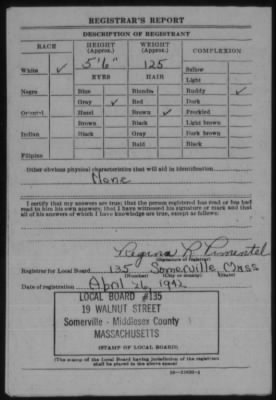 REGISTRAR'S REPORT
DESCRIPTION OF REGISTRANT
RACE HEIGHT (Approx.) WEIGHT (Approx.) COMPLEXION
White ✓ 5'6" 125 Sallow
EYES HAIR Light
Negro Blue Blonde Ruddy ✓
Gray ✓ Red Dark
Oriental Hazel Brown ✓ Freckled
Brown Black Light brown
Indian Black Gray Dark brown
Bald Black
Filipino
Other obvious physical characteristics that will aid in identification
None
I certify that my answers are true; that the person registered has read or has had
read to him his own answers; that I have witnessed his signature or mark and that
all of his answers of which I have knowledge are true, except as follows:
Regina R. Pimentel
(Signature of registrar)
Registrar for Local Board 135 Somerville Mass
(Number) (City or county) (State)
Date of registration April 26, 1942
LOCAL BOARD #135
19 WALNUT STREET
Somerville - Middlesex County
MASSACHUSETTS
(STAMP OF LOCAL BOARD)
(The stamp of the Local Board having jurisdiction of the registrant
shall be placed in the above space.)